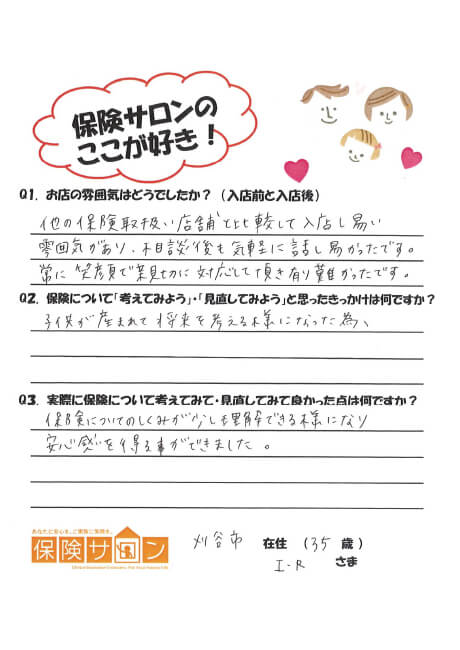 保険サロンの
ここが好き！
Q1. お店の雰囲気はどうでしたか？（入店前と入店後）
他の保険取扱い店舗と比較して入店し易い
雰囲気があり、相談後も気軽に話し易かったです。
常に笑顔で親切に対応して頂き有り難かったです。
Q2. 保険について「考えてみよう」・「見直してみよう」と思ったきっかけは何ですか？
子供が産まれて将来を考える様になった為、
Q3. 実際に保険について考えてみて・見直してみて良かった点は何ですか？
保険についてのしくみが少しも理解できる様になり
安心感を得る事ができました。
あなたと安心を、ご家族に笑顔を。
保険サロン
刈谷市 在住 （35 歳）
I-R さま